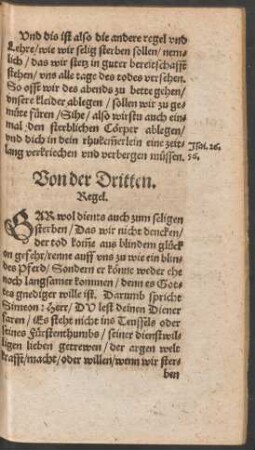 Und dis ist also die andere regel vnd
Lehre/wie wir selig sterben sollen/nem-
lich/das wir stetz in guter bereitschafft
stehen/vns alle tage des todes versehen.
So offt wir des abends zu bette gehen/
vnsere kleider ablegen/sollen wir zu ge-
müte füren/Sihe/also wirstu auch ein-
mal den sterblichen Cörper ablegen/
vnd dich in dein rhukem̃erlein eine zeit-
lang verkriechen vnd verbergen müssen.
Isai. 26.
26.
Von der Dritten.
Regel.
GAR wol dients auch zum seligen
sterben/Das wir nicht dencken/
der tod kom̃e aus blindem glück
on gefehr/renne auff vns zu wie ein blin-
des Pferd/Sondern er könne weder ehe
noch langsamer kommen/denn es Got-
tes gnediger wille ist. Darumb spricht
Simeon: Herr/DV lest deinen Diener
faren/Es steht nicht ins Teuffels oder
seines Fürstenthumbs/seiner dienstwil-
ligen lieben getrewen/der argen welt
krafft/macht/oder willen/wenn wir ster-
ben